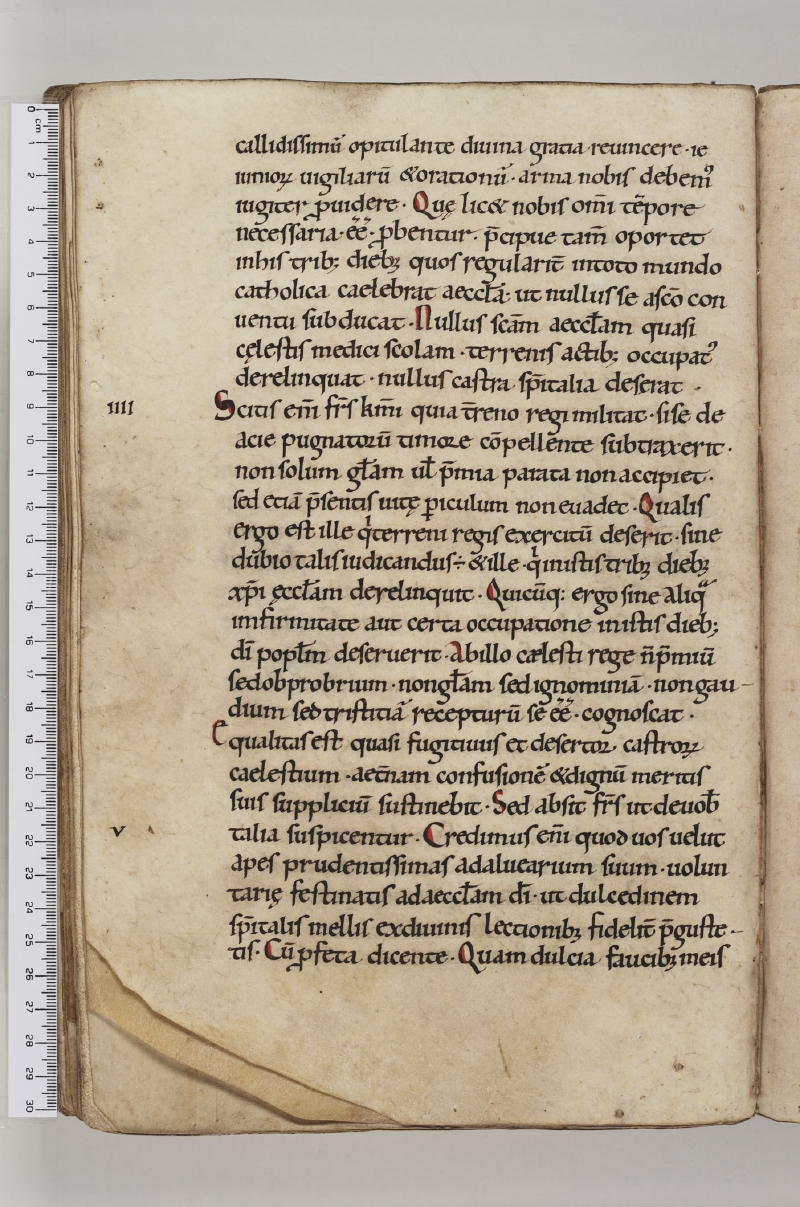 callidissimū opitulante diuina gratia reuincere · ie
iunioꝝ uigiliarū &orationū · arma nobis debemꝰ
iugiter p̱uidere · Quę lic& nobis om̄i tēpore
necessaria · eē · p̱bentur · p̄cipue tam̄ oportet
inhis trib; dieb; quos regularit̄ intoto mundo
catholica caelebrat aeccƚa · ut nullus se asc̄o con
uentu subducat · Nullus sc̄am aeccƚam quasi
cęlestis medici scolam · terrenis actib; occupatꝰ
derelinquat · nullus castra sp̄italia deserat ·
IIII
Scitis em̄ fr̄s km̄i quia t̄reno regi militat · si se de
acie pugnatoꝝū timore cōpellente subtraxerit ·
non solum gƚam uƚ p̄mia parata non accipiet ·
sed etiā p̄sentis uitę ꝑiculum non euadet · Qualis
ergo est ille qͥ terreni regis exercitū deserit · sine
dubio talis iudicandus ÷ &ille · qͥ inistis trib; dieb;
xp̄i ęccƚam derelinquit · Quicūq: ergo sine aliqͣ
infirmitate aut certa occupatione inistis dieb;
dī popƚm deseruerit · Abillo cælesti rege n̄ p̄miū
sed obprobrium · non gƚam sed ignominiā · non gau-
dium sed tristitiā recepturū se eē · cognoscat ·
Et qualitas est quasi fugitiuus et desertor castroꝝ
caelestium · aet̄nam confusionē &dignū meritis
suis suppliciū sustinebit · Sed absit fr̄s ut deuob̄
V
talia suspicentur · Credimus em̄ quod uos uelut
apes prudentissimas adaluearium suum · uolun
tarię festinatis adaeccƚam dī · ut dulcedinem
sp̄italis mellis exdiuinis lectionib; fidelit̄ p̄guste-
tis · Cū p̱feta dicente · Quam dulcia faucib; meis